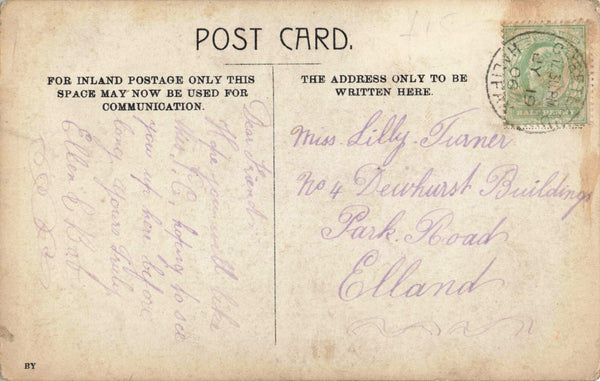 POST CARD.
FOR INLAND POSTAGE ONLY THIS
SPACE MAY NOW BE USED FOR
COMMUNICATION.
THE ADDRESS ONLY TO BE
WRITTEN HERE.
Dear Friend
Hope you well like
this P.C, hoping to see
you up here before
long yours Truly
Ellen E
Miss. Lilly. Turner
No 4 Dewhurst Buildings
Park. Road
Elland
HALIFAX
JY 19
06
HALF PENNY
BY